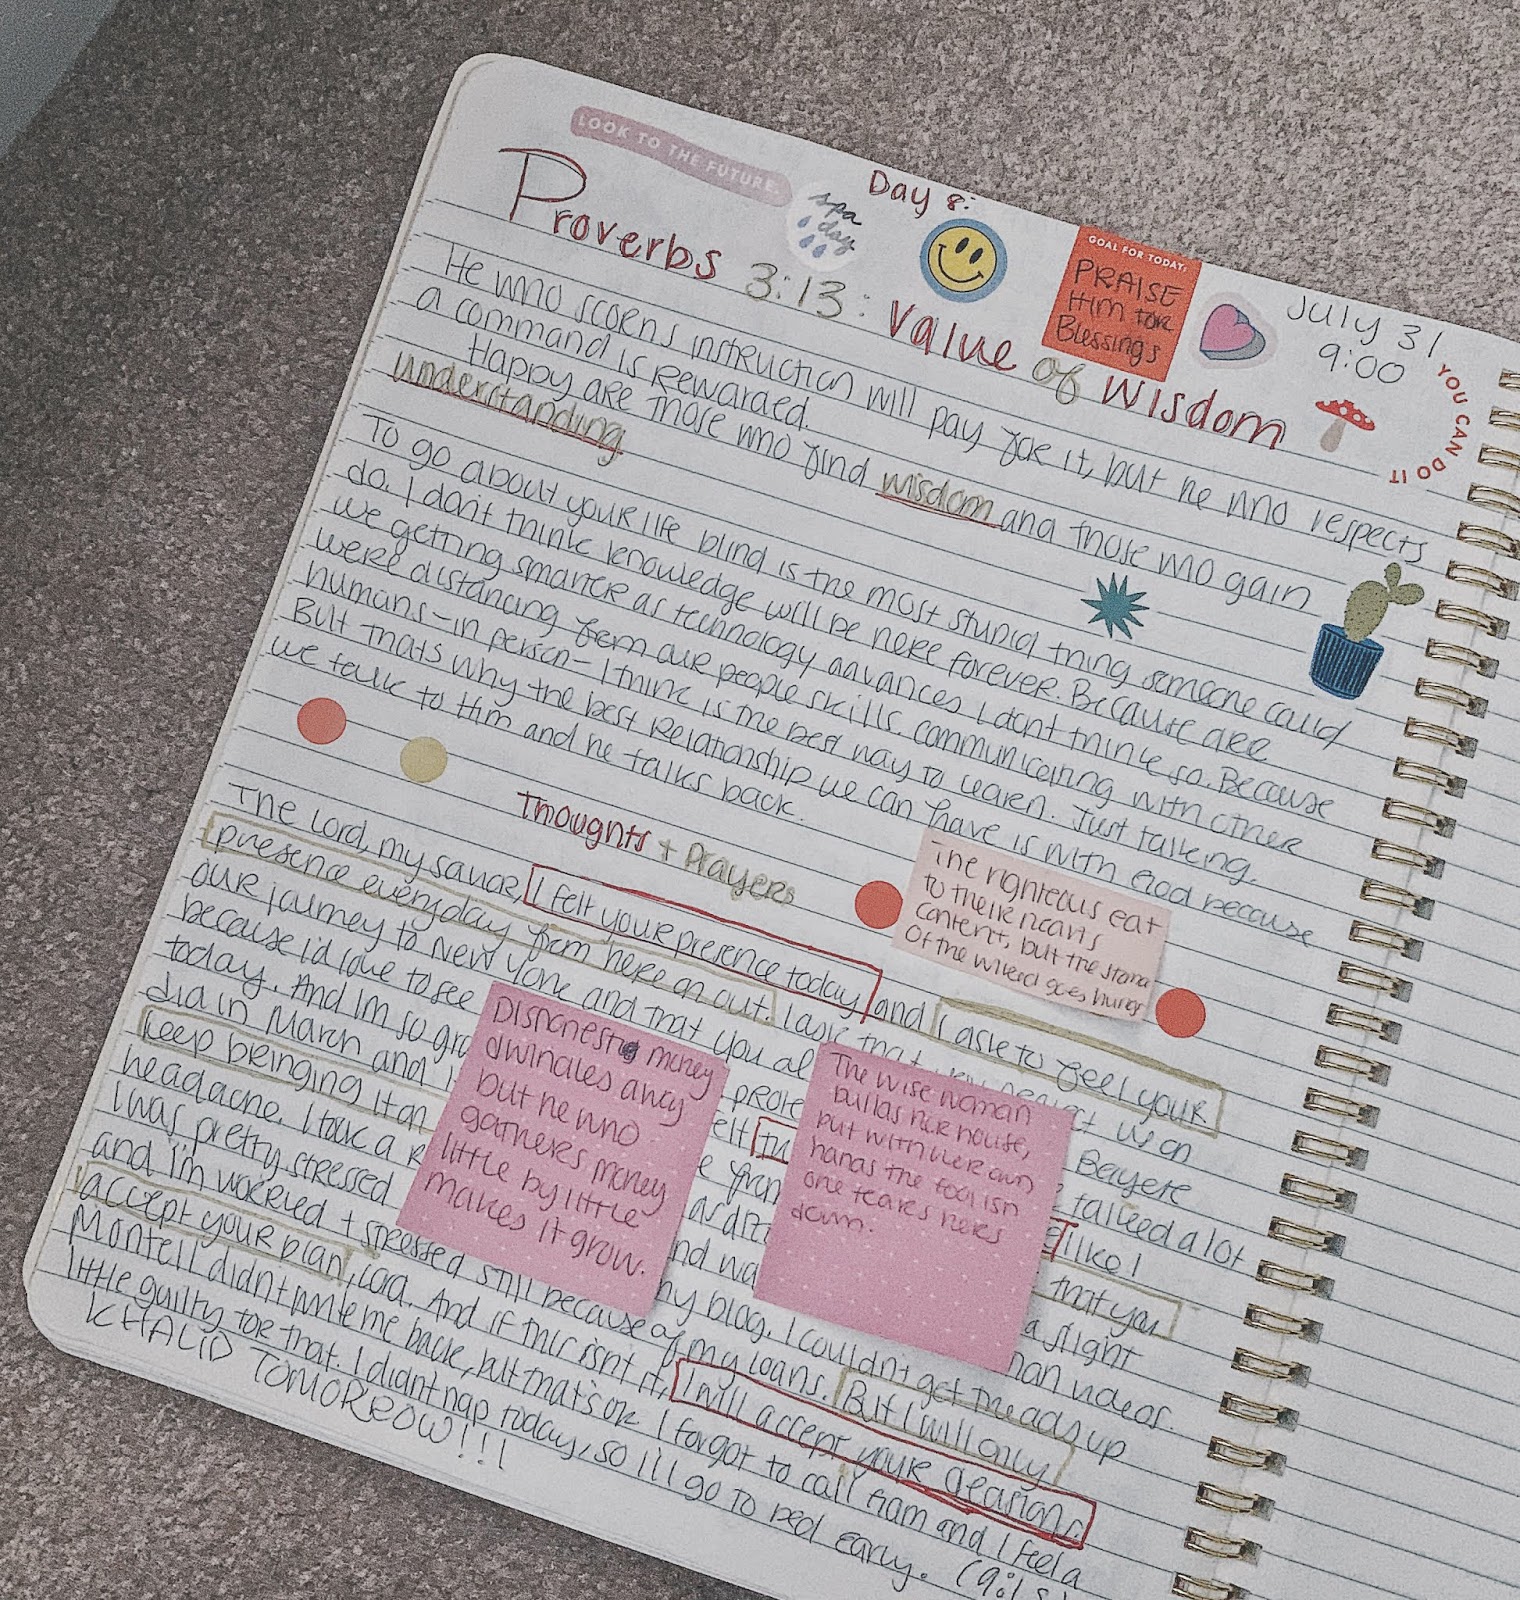 LOOK TO THE FUTURE.
spa
day
Day 8:
GOAL FOR TODAY:
PRAISE
Him for
Blessings
July 31
9:00
YOU CAN DO IT
Proverbs 3:13: Value of Wisdom
He who scorns instruction will pay for it, but he who respects
a command is rewarded.
Happy are those who find wisdom and those who gain
understanding
To go about your life blind is the most stupid thing someone could
do. I don't think knowledge will be here forever. Because are
we getting smarter as technology advances I dont think so. Because
were distancing from our people skills. communicating with other
humans - in person - I think is the best way to learn. Just talking.
But thats why the best relationship we can have is with God because
we talk to Him and he talks back.
Thoughts + Prayers
The Lord, my savior, I felt your presence today and I ask to feel your
presence everyday from here on out. I ask that you protect us on
our journey to New York and that you al
because i'd love to see Beyere
today. And Im so gra prote talked a lot
did in March and elt like I
keep bringing it on that you
headache. I took a a slight
I was pretty stressed nd wa man videos.
and i'm worried + stressed still because of my loans. But I will only
my blog. I couldnt get the ads up
accept your plan, Lord. And if this isnt it, I will accept your
Montell didnt write me back, but that's ok. I forgot to call and I feel a
little guilty for that. I didnt nap today, so i'll go to bed early.
KHALID TOMORROW!!!
The righteous eat
to their hearts
content, but the
of the wicked goes
Dishonest money
dwindles away
but he who
gathers money
little by little
makes it grow.
The wise woman
builds her house,
but with her own
hands the foolish
one tears hers
down.